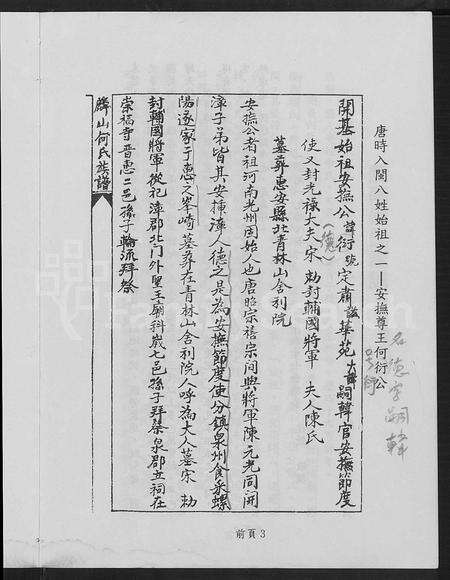 唐時入閩八姓始祖之一——安撫尊王何衍公
開基始祖安撫公諱衍號定肅諡華苑大諱嗣韓官安撫節度
使又封光祿大夫宋 勅封輔國將軍 夫人陳氏
墓葬惠安縣北青林山舍利院
安撫公者祖河南光州固始人也唐昭宗禧宗間與將軍陳元光同開
漳子弟皆其安插漳人德之是為安撫節度使分鎮泉州食采螺
陽遂家于惠之峯崎墓葬在青林山舍利院人呼為大人墓宋 勅
封輔國將軍從祀漳郡北門外聖王廟科歲七邑孫子群祭泉郡立祠在
崇福寺晉惠二邑孫子輪流拜祭
麟山何氏族譜
前頁3